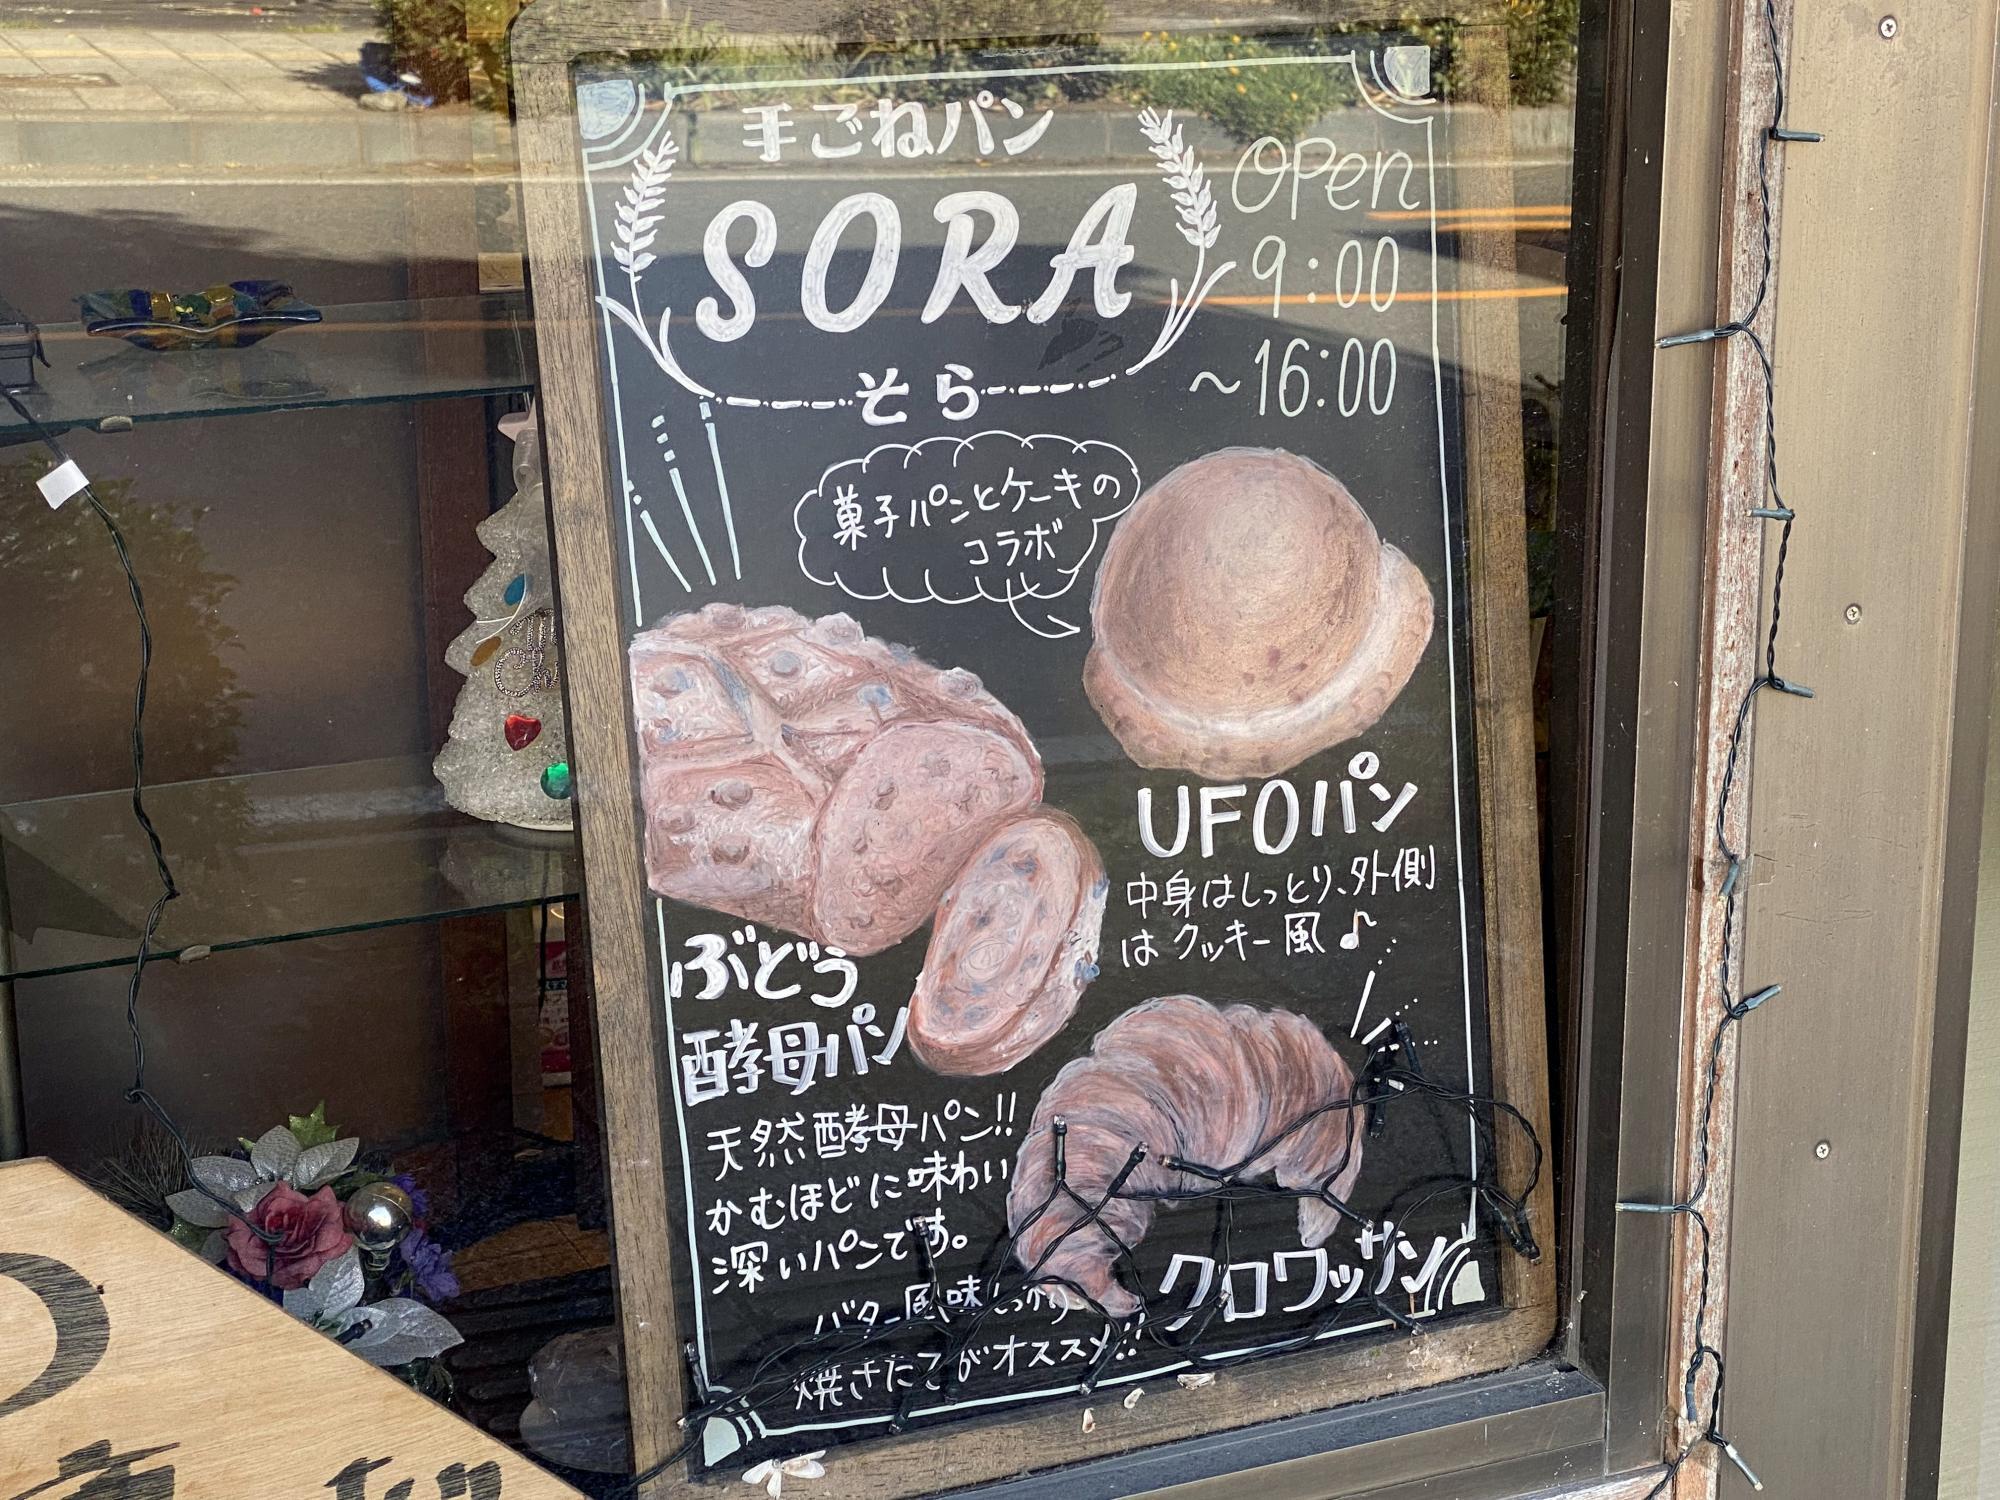 手ごねパン
SORA
そら
OPen
9:00
~16:00
菓子パンとケーキの
コラボ
UFOパン
中身はしっとり、外側
はクッキー風♪
ぶどう
酵母パン
天然酵母パン!!
かむほどに味わい
深いパンです。
クロワッサン
バター風味しっかり
焼きたてがオススメ!!